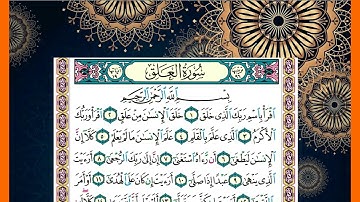 سُورَةُ العَلَقِ
بِسْمِ اللَّهِ الرَّحْمَٰنِ الرَّحِيمِ
اقْرَأْ بِاسْمِ رَبِّكَ الَّذِي خَلَقَ ١ خَلَقَ الْإِنسَٰنَ مِنْ عَلَقٍ ٢ اقْرَأْ وَرَبُّكَ
الْأَكْرَمُ ٣ الَّذِي عَلَّمَ بِالْقَلَمِ ٤ عَلَّمَ الْإِنسَٰنَ مَا لَمْ يَعْلَمْ ٥ كَلَّا إِنَّ
الْإِنسَٰنَ لَيَطْغَىٰ ٦ أَن رَّءَاهُ اسْتَغْنَىٰ ٧ إِنَّ إِلَىٰ رَبِّكَ الرُّجْعَىٰ ٨ أَرَءَيْتَ
الَّذِي يَنْهَىٰ ٩ عَبْدًا إِذَا صَلَّىٰ ١٠ أَرَءَيْتَ إِن كَانَ عَلَى الْهُدَىٰ ١١ أَوْ أَمَرَ